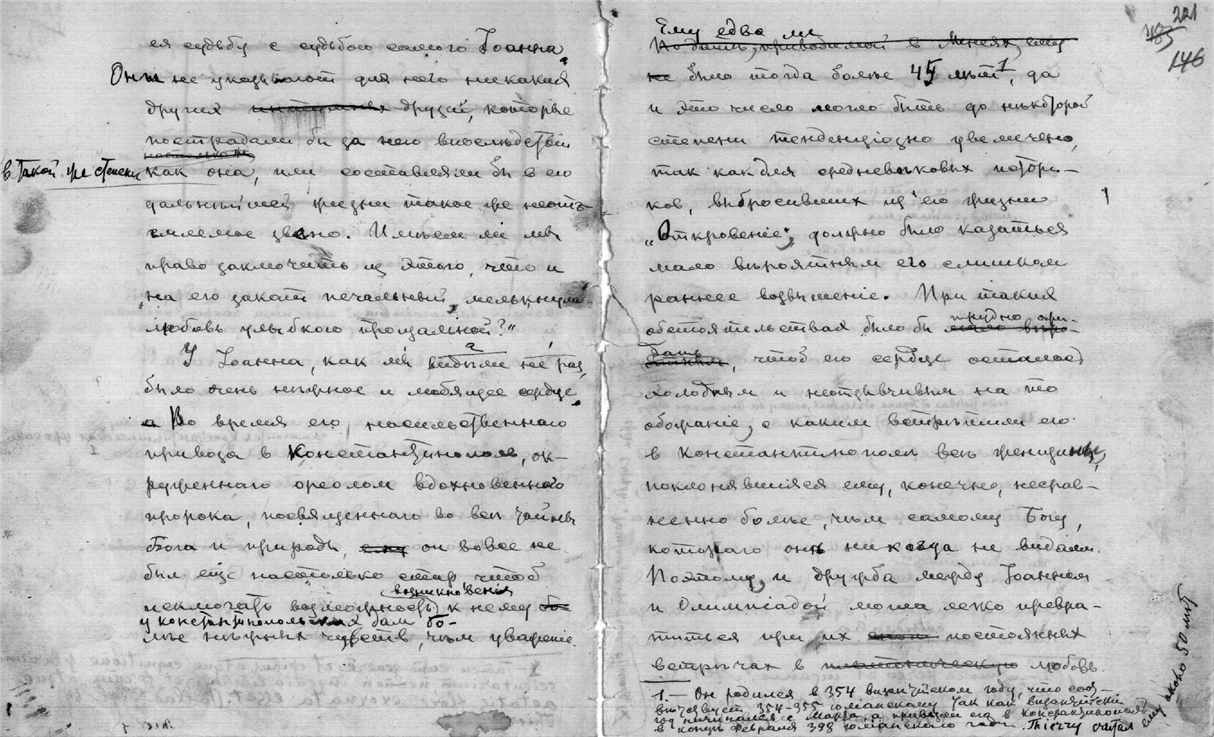 ея судьбу с судьбою самого Іоанна.
Они не указываютъ для него никакихъ
другихъ друзей, которые
пострадали бы за него впослѣдствіи
въ такой же степени какъ она, или составляли бы въ его
дальнѣйшей жизни такое же неотъ-
емлемое звено. Имѣемъ ли мы
право заключить изъ этого, что и
„на его закатъ печальный мелькнула
любовь улыбкою прощальной?“
У Іоанна, какъ мы видѣли не разъ,
было очень нѣжное и любящее сердце.
Во время его насильственнаго
привоза въ Константинополь, ок-
руженнаго ореоломъ вдохновеннаго
пророка, посвященнаго во всѣ тайны
Бога и природы, онъ вовсе не
былъ еще настолько старъ чтобъ
исключать возможность возникновенія къ нему
у константинопольскихъ дамъ бо-
лѣе нѣжныхъ чувствъ, чѣмъ уваженіе.
221
146
Ему едва ли
было тогда болѣе 45 лѣтъ¹, да
и это число могло быть до нѣкоторой
степени тенденціозно увеличено,
такъ какъ для средневѣковыхъ истори-
ковъ, выбросившихъ изъ его жизни
„Откровеніе“, должно было казаться
мало вѣроятнымъ его слишкомъ
раннее возвышеніе. При такихъ
обстоятельствахъ было бы трудно ожи-
дать, чтобъ его сердце осталось
холоднымъ и неотзывчивымъ на то
обожаніе, съ какимъ встрѣтили его
въ Константинополѣ всѣ женщины,
поклонявшіяся ему, конечно, несрав-
ненно болѣе, чѣмъ самому Богу,
котораго онѣ никогда не видали.
Поэтому, и дружба между Іоанномъ
и Олимпіадой могла легко превра-
титься при ихъ постоянныхъ
встрѣчахъ въ любовь.
1.— Онъ родился въ 354 византійскомъ году, что соот-
вѣтствуетъ 354-355 юліанскому такъ какъ византійскій
годъ начинался съ Марта, а привезли его въ Константинополь
въ концѣ февраля 398 юліанскаго года. Thierry считалъ
ему около 50 лѣтъ